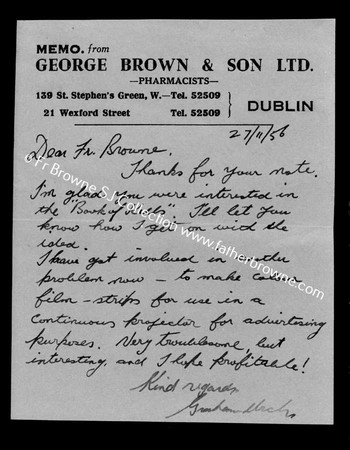 MEMO. from
GEORGE BROWN & SON LTD.
—PHARMACISTS—
139 St. Stephen's Green, W.—Tel. 52509
21 Wexford Street Tel. 52509
DUBLIN
27/11/56
Dear Fr. Browne.
Thanks for your note.
I'm glad you were interested in
the "Book of". I'll let you
know how I get on with the
idea.
I have got involved in another
problem now – to make colour
film-strips for use in a
continuous projector for advertising
purposes. Very troublesome, but
interesting, and I hope profitable!
Kind regards
Graham
© Fr Browne S.J. Collection
www.fatherbrowne.com